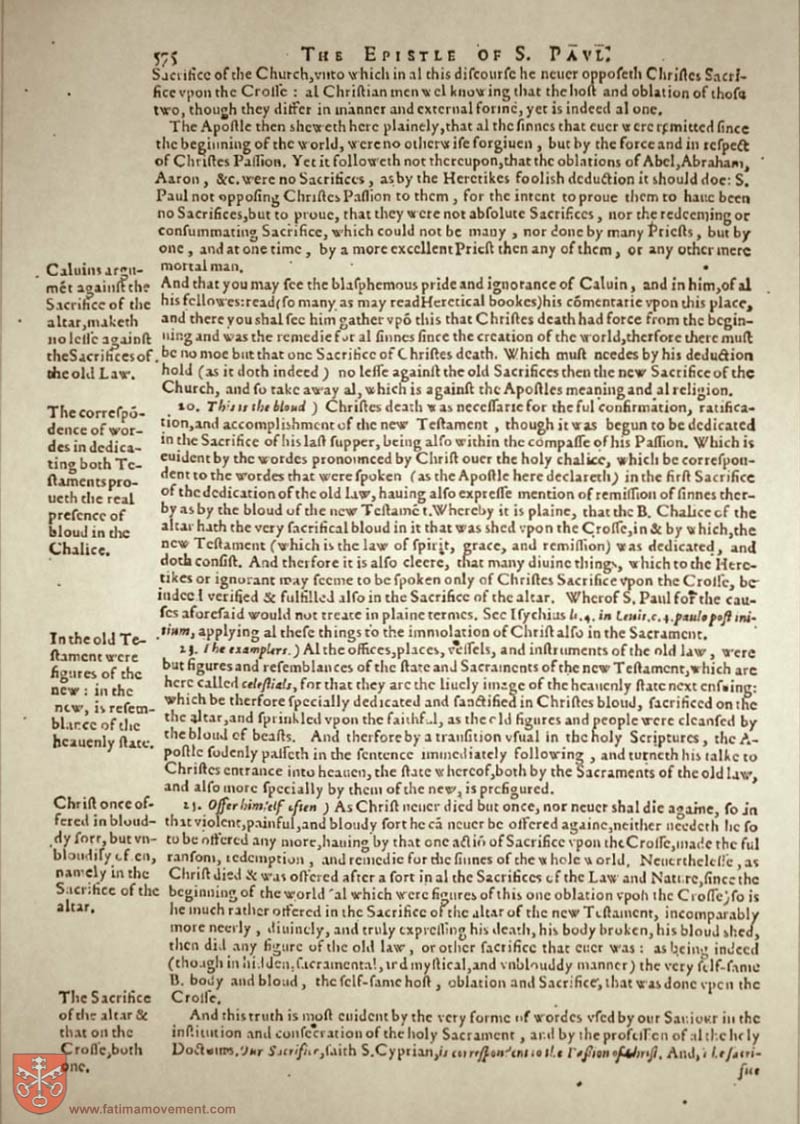 575
THE EPISTLE OF S. PAVL.
Sacrifice of the Church, vnto which in al this diſcourſe he neuer oppoſeth Chriſtes Sacri-
fice vpon the Croſſe : al Chriſtian men wel knowing that the hoſt and oblation of thoſe
two, though they differ in manner and external forme, yet is indeed al one.
The Apoſtle then sheweth here plainely, that al the ſinnes that euer were remitted ſince
the beginning of the world, were no otherwiſe forgiuen , but by the force and in reſpect
of Chriſtes Paſſion. Yet it followeth not thereupon, that the oblations of Abel, Abraham,
Aaron , &c. were no Sacrifices , as by the Heretikes foolish deduction it should doe: S.
Paul not oppoſing Chriſtes Paſſion to them , for the intent to proue them to haue been
no Sacrifices, but to proue, that they were not abſolute Sacrifices , nor the redeeming or
conſummating Sacrifice, which could not be many , nor done by many Prieſts , but by
one , and at one time , by a more excellent Prieſt then any of them , or any other mere
mortal man.
Caluins argu-
mẽt againſt the
Sacrifice of the
altar, maketh
no leſſe againſt
the Sacrifices of
the old Law.
And that you may ſee the blaſphemous pride and ignorance of Caluin , and in him, of al
his fellowes: read (ſo many as may read Heretical bookes) his cõmentarie vpon this place,
and there you shal ſee him gather vpõ this that Chriſtes death had force from the begin-
ning and was the remedie for al ſinnes ſince the creation of the world, therfore there muſt
be no moe but that one Sacrifice of Chriſtes death. Which muſt needes by his deduction
hold (as it doth indeed ) no leſſe againſt the old Sacrifices then the new Sacrifice of the
Church, and ſo take away al, which is againſt the Apoſtles meaning and al religion.
The correſpõ-
dence of wor-
des in dedica-
ting both Te-
ſtaments pro-
ueth the real
preſence of
bloud in the
Chalice.
20. This is the bloud ) Chriſtes death was neceſſarie for the ful confirmation, ratifica-
tion, and accomplishment of the new Teſtament , though it was begun to be dedicated
in the Sacrifice of his laſt ſupper, being alſo within the compaſſe of his Paſſion. Which is
euident by the wordes pronounced by Chriſt ouer the holy chalice, which be correſpon-
dent to the wordes that were ſpoken (as the Apoſtle here declareth) in the firſt Sacrifice
of the dedication of the old law, hauing alſo expreſſe mention of remiſſion of ſinnes ther-
by as by the bloud of the new Teſtamẽt. Whereby it is plaine, that the B. Chalice of the
altar hath the very ſacrifical bloud in it that was shed vpon the Croſſe, in & by which, the
new Teſtament (which is the law of ſpirit, grace, and remiſſion) was dedicated, and
doth conſiſt. And therfore it is alſo cleere, that many diuine things, which to the Here-
tikes or ignorant may ſeeme to be ſpoken only of Chriſtes Sacrifice vpon the Croſſe, be
indeed verified & fulfilled alſo in the Sacrifice of the altar. Wherof S. Paul for the cau-
ſes aforeſaid would not treate in plaine termes. See Iſychius li. 4. in Leuit. c. 4. paulo poſt ini-
tium, applying al theſe things to the immolation of Chriſt alſo in the Sacrament.
In the old Te-
ſtament were
figures of the
new : in the
new, is reſem-
blance of the
heauenly ſtate.
23. The examplers. ) Al the offices, places, veſſels, and inſtruments of the old law , were
but figures and reſemblances of the ſtate and Sacraments of the new Teſtament, which are
here called celeſtials, for that they are the liuely image of the heauenly ſtate next enſuing:
which be therfore ſpecially dedicated and ſanctified in Chriſtes bloud, ſacrificed on the
the altar, and ſprinkled vpon the faithful, as the old figures and people were cleanſed by
the bloud of beaſts. And therfore by a tranſition vſual in the holy Scriptures , the A-
poſtle ſodenly paſſeth in the ſentence immediately following , and turneth his talke to
Chriſtes entrance into heauen, the ſtate whereof, both by the Sacraments of the old law,
and alſo more ſpecially by them of the new, is prefigured.
Chriſt once of-
fered in bloud-
dy ſort, but vn-
bloudily often,
namely in the
Sacrifice of the
altar.
25. Offer himſelf often ) As Chriſt neuer died but once, nor neuer shal die againe, ſo in
that violent, painful, and bloudy ſort he cã neuer be offered againe, neither needeth he ſo
to be offered any more, hauing by that one actiõ of Sacrifice vpon the Croſſe, made the ful
ranſom, redemption , and remedie for the ſinnes of the whole world. Neuertheleſſe , as
Chriſt died & was offered after a ſort in al the Sacrifices of the Law and Nature, ſince the
beginning of the world (al which were figures of this one oblation vpon the Croſſe) ſo is
he much rather offered in the Sacrifice of the altar of the new Teſtament, incomparably
more neerly , diuinely, and truly expreſſing his death, his body broken, his bloud shed,
then did any figure of the old law , or other ſacrifice that euer was : as being indeed
(though in hidden, ſacramental, and myſtical, and vnblouddy manner) the very ſelf-ſame
B. body and bloud , the ſelf-ſame hoſt , oblation and Sacrifice, that was done vpon the
Croſſe.
The Sacrifice
of the altar &
that on the
Croſſe, both
one.
And this truth is moſt euident by the very forme of wordes vſed by our Sauiour in the
inſtitution and conſecration of the holy Sacrament , and by the profeſſion of al the holy
Doctours. Our Sacrifice, ſaith S. Cyprian, is correſpondent to the Paſſion of Chriſt. And, the ſacri-
fice
www.fatimamovement.com